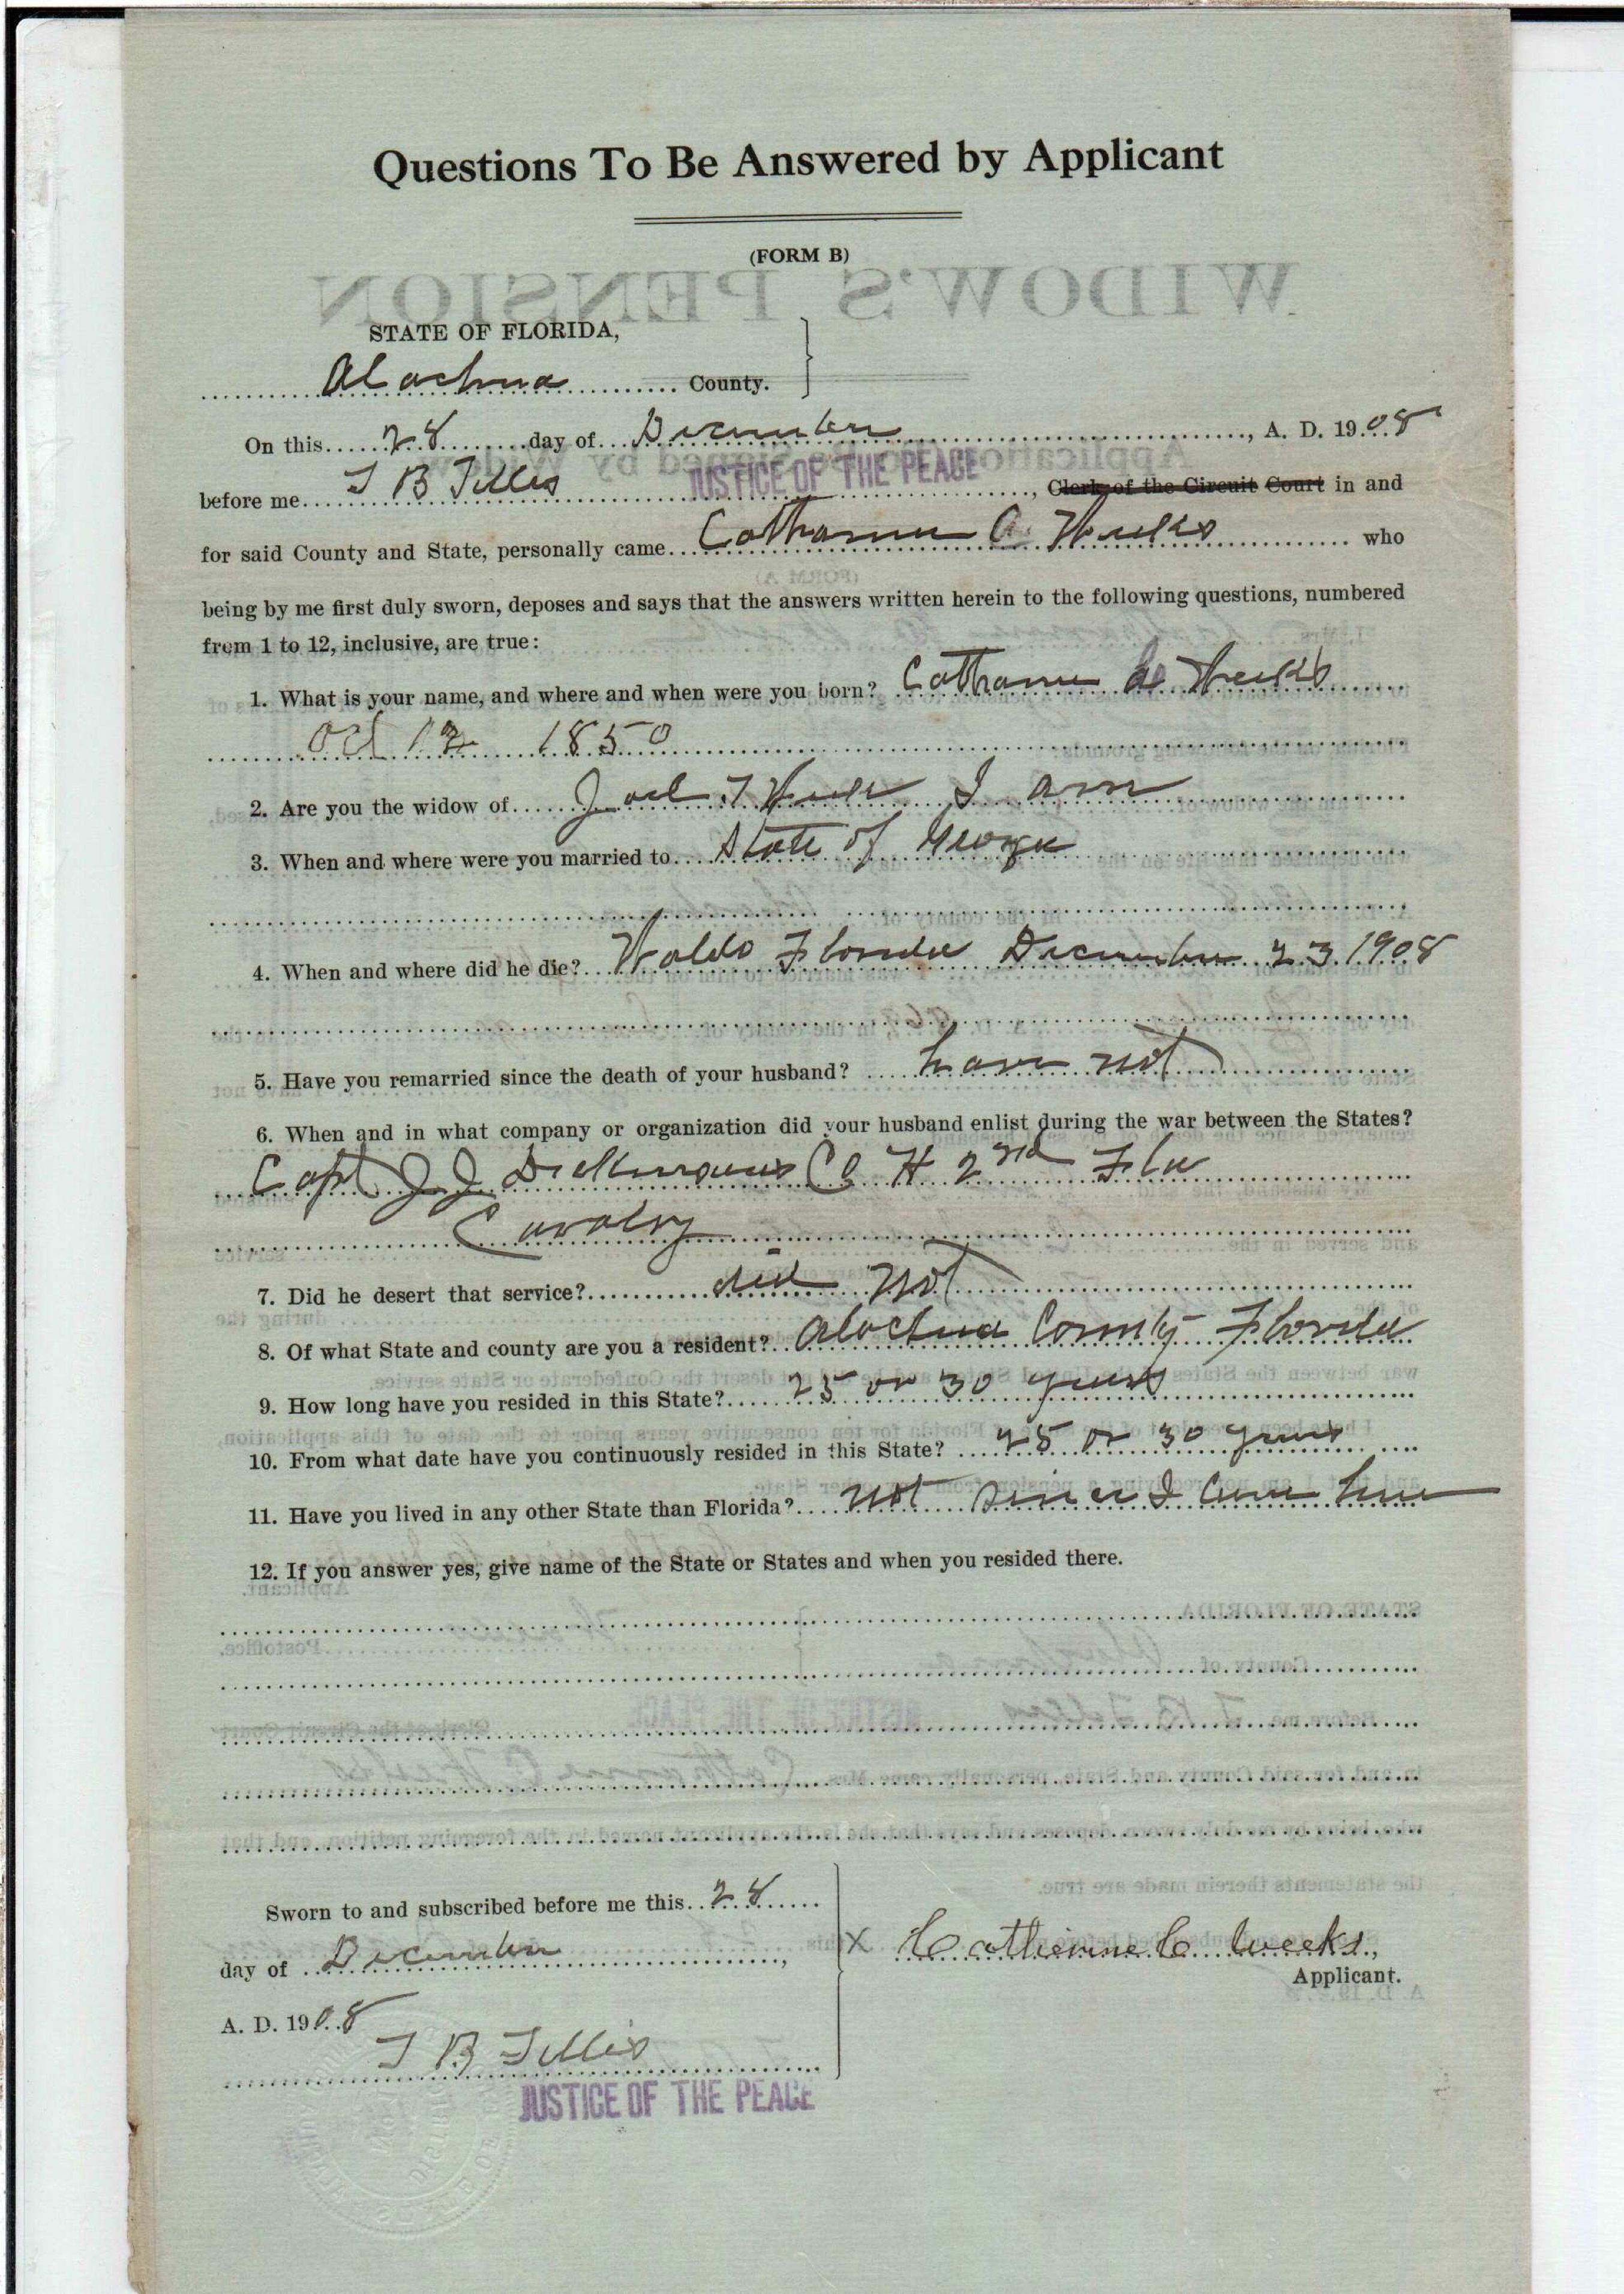 Questions To Be Answered by Applicant
(FORM B)
WIDOW'S PENSION
STATE OF FLORIDA,
Alachua County.
On this 28 day of December, A. D. 1908
before me T B Tillis JUSTICE OF THE PEACE, Clerk of the Circuit Court in and
for said County and State, personally came Catharine C Weeks who
being by me first duly sworn, deposes and says that the answers written herein to the following questions, numbered
from 1 to 12, inclusive, are true:
1. What is your name, and where and when were you born? Catharine C Weeks
Oct 12 1850
2. Are you the widow of Joel T Weeks I am
3. When and where were you married to State of Georgia
4. When and where did he die? Waldo Florida December 23 1908
5. Have you remarried since the death of your husband? have not
6. When and in what company or organization did your husband enlist during the war between the States?
Capt J. J. Dickinsons Co H 2nd Fla
Cavalry
7. Did he desert that service? did not
8. Of what State and county are you a resident? Alachua County Florida
9. How long have you resided in this State? 25 or 30 years
10. From what date have you continuously resided in this State? 25 or 30 years
11. Have you lived in any other State than Florida? not since I came here
12. If you answer yes, give name of the State or States and when you resided there.
Sworn to and subscribed before me this 28
day of December,
A. D. 1908
T B Tillis
JUSTICE OF THE PEACE
X Catherine C Weeks,
Applicant.